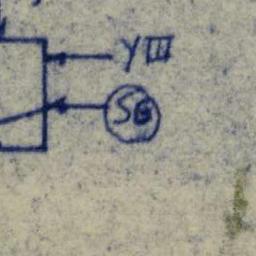 YIII
SG